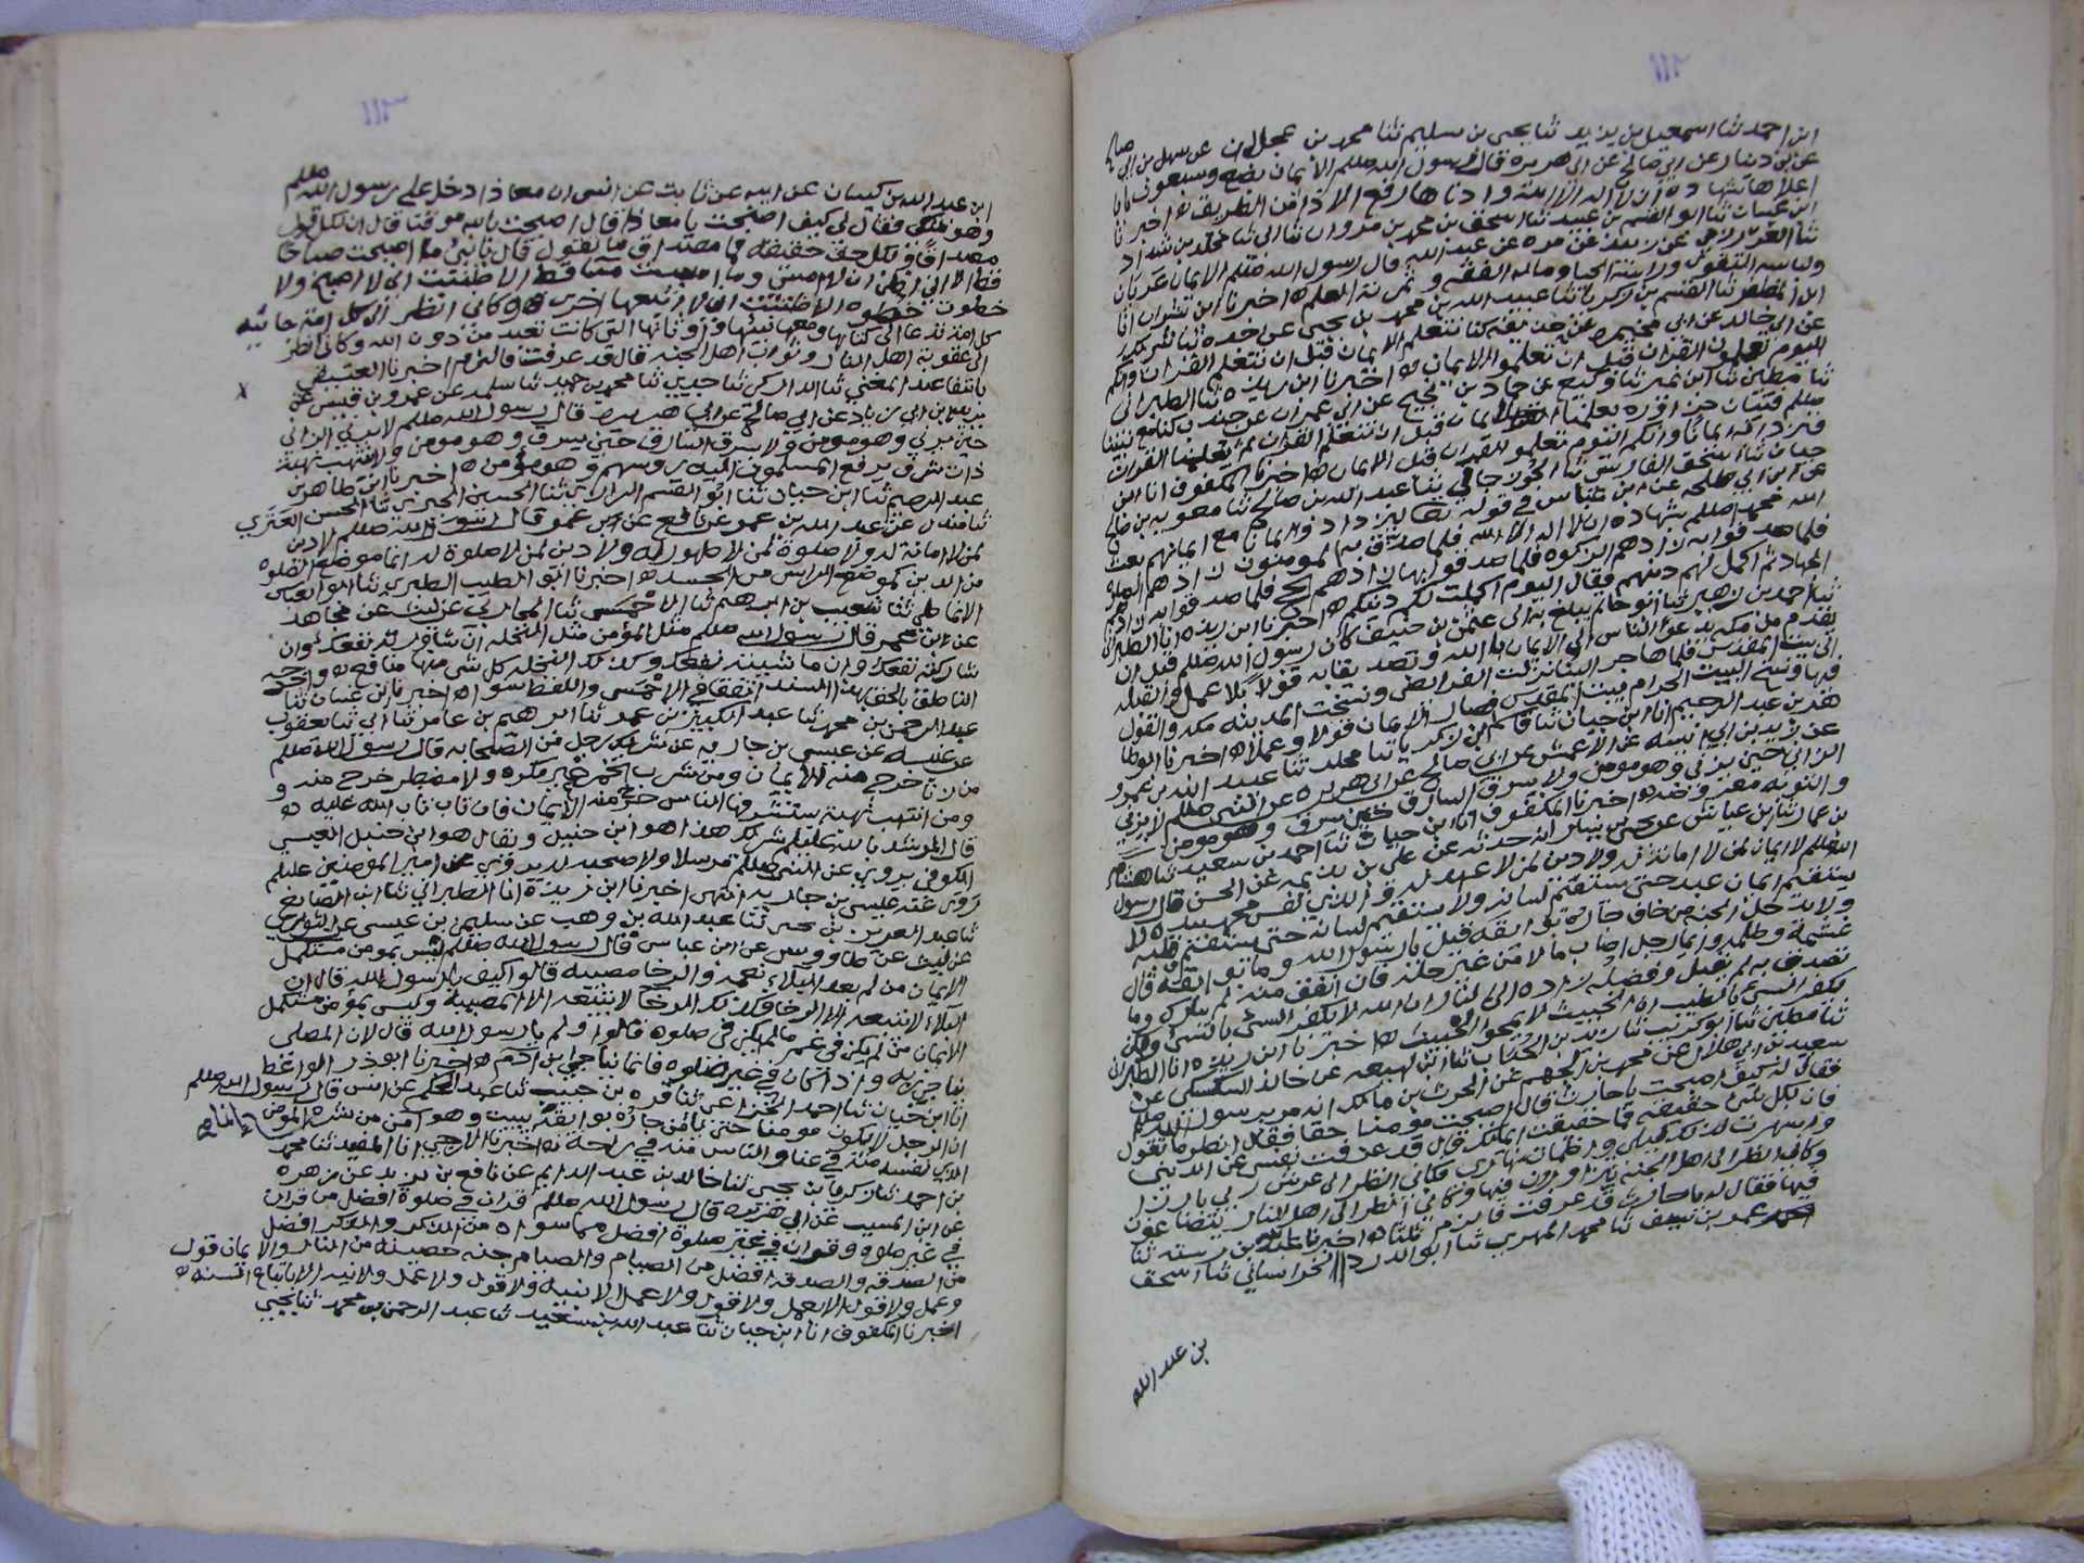 ١١٢
ابن احمد ثنا اسمعيل بن يزيد ثنا يحيى بن سليم ثنا محمد بن عجلان عن سهل بن ابي صالح
عن بن دينار عن ابي صالح عن ابي هريره قال رسول الله صللم الايمان بضع وسبعون بابا
اعلاها شهادة ان لا اله الا الله وادناها رفع الاذا من الطريق ه اخبرنا
ابن غسان ثنا ابو القسم بن عبيد ثنا اسحق بن محمد بن مروان ثنا ابي ثنا مخلد بن شداد
عن مره عن عبد الله قال رسول الله صللم الايمان عريان
ولباسه التقوى وزينته الحيا وماله الفقه وثمرته العلم ه اخبرنا ابن
ثنا القسم بن زكريا ثنا عبيد الله بن محمد بن يحيى عن
عن ابي خالد عن ابي عن حذيفه كنا نتعلم الايمان قبل ان نتعلم القران وانكم
اليوم تعلمون القران قبل ان تعلموا الايمان ه اخبرنا ابن ريذه ثنا الطبراني
ثنا مطين ثنا ابن نمير ثنا وكيع عن حماد بن نجيح عن ابي عمران عن جندب كنا مع نبينا
صللم فتيان حزاوره تعلمنا الايمان قبل ان نتعلم القران ثم تعلمنا القران
فنزداد به ايمانا وانكم اليوم تعلمو القران قبل الايمان ه اخبرنا المكفوف انا ابن
حيان ثنا اسحق الفارسي ثنا ثنا عبد الله بن صالح ثنا معويه بن صالح
عن ابن ابي طلحه عن ابن عباس في قوله تعالى ليزدادوا ايمانا مع ايمانهم بعث
الله محمدا صللم بشهادة ان لا اله الا الله فلما صدق به المومنون زادهم الصلوه
فلما صدقوا به زادهم الزكوه فلما صدقوا بها زادهم الحج فلما صدقوا به زادهم
الجهاد ثم اكمل لهم دينهم فقال اليوم اكملت لكم دينكم ه اخبرنا ابن ريذه انا الطبراني
ثنا احمد بن زهير ثنا عثمن بن حنيف كان رسول الله صللم قبل ان
يقدم من مكه يدعو الناس الى الايمان بالله وتصديقا به قولا بلا عمل والقبله
الى بيت المقدس فلما هاجر الينا نزلت الفرايض ونسخت المدينه مكه والقول
فيها ونسخ البيت الحرام بيت المقدس فصار الايمان قولا وعملا ه اخبرنا
بن عبد الرحيم انا ابن حيان ثنا قاسم بن زكريا ثنا محمد ثنا عبيد الله بن عمرو
عن زيد بن ابي انيسه عن الاعمش عن ابي صالح عن ابي هريره عن النبي صللم لا يزني
الزاني حين يزني وهو مومن ولا يسرق السارق حين يسرق وهو مومن
والتوبه معروضه ه اخبرنا المكفوف انا ابن حيان ثنا احمد بن سعيد ثنا هشام
بن عمار ثنا بن عياش عن انه حدثه عن علي بن عن الحسن قال رسول
الله صللم لا ايمان لمن لا امانة له ولا دين لمن لا عهد له والذي نفس محمد بيده لا
يستقيم ايمان عبد حتى يستقيم لسانه ولا يستقيم لسانه حتى يستقيم قلبه
ولا يدخل الجنه من خاف جاره بوائقه قيل يا رسول الله وما بوائقه قال
غشمه وظلمه وايما رجل اصاب مالا من غير حله فان انفق منه لم يبارك وما
تصدق به لم يقبل وفضله زاده الى النار ان الله لا يكفر السي بالسي ولكن
يكفر السي بالطيب ان الخبيث لا يمحو الخبيث ه اخبرنا ابن ريذه انا الطبراني
ثنا مطين ثنا ابو كريب ثنا زيد بن الحباب ثنا ابن لهيعه عن خالد السكسكي عن
سعيد بن ابي هلال عن محمد بن الجهم عن الحرث بن مالك انه مر برسول الله صللم
فقال له كيف اصبحت يا حارث قال اصبحت مومنا حقا فقال انظر ما تقول
فان لكل شي حقيقه فما حقيقت ايمانك قال قد عزفت نفسي عن الدنيا
واسهرت لذلك ليلي واظمات نهاري فكاني انظر الى عرش ربي بارزا
وكاني انظر الى اهل الجنه يتزاورون فيها وكاني انظر الى اهل النار يتضاغون
فيها فقال له يا حارث قد عرفت فالزم ثلثا ه اخبرنا عبد بن رسته ثنا
عمر بن سيف ثنا محمد المهري ثنا ابو الدرد الخراساني ثنا اسحق
بن عبد الله
١١٣
ابن عبد الله بن كيسان عن ابيه عن ثابت عن انس ان معاذا دخل على رسول الله صللم
وهو متكي فقال لي كيف اصبحت يا معاذ قال اصبحت بالله موقنا قال ان لكل قول
مصداقا ولكل حق حقيقه فما مصداق ما تقول قال يا نبي ما اصبحت صباحا
قط الا اني اظن ان لا امسي وما امسيت مسا قط الا ظننت اني لا اصبح ولا
خطوت خطوه الا ظننت اني لا اتبعها اخرى وكاني انظر الى كل امة جاثيه
كل امة تدعا الى كتابها ومعها نبيها واوثانها التي كانت تعبد من دون الله وكاني انظر
الى عقوبة اهل النار وثواب اهل الجنه قال قد عرفت فالزم اخبرنا العتيقي
ثنا محمد بن حميد ثنا سلمه عن عمرو بن قيس عن
يزيد بن ابي زياد عن ابي صالح عن ابي هريره قال رسول الله صللم لا يزني الزاني
حين يزني وهو مومن ولا يسرق السارق حين يسرق وهو مومن ولا ينتهب نهبة
ذات شرف يرفع المسلمون اليه روسهم وهو مومن ه اخبرنا ابن طاهر بن
عبد الرحيم ثنا ابن حيان ثنا ابو القسم الرازي ثنا الحسين ثنا الحسن العنزي
ثنا مندل عن عبد الله بن عمر عن نافع عن ابن عمر قال رسول الله صللم لا دين
لمن لا امانة له ولا صلوة لمن لا طهور له ولا دين لمن لا صلوة له انما موضع الصلوه
من الدين كموضع الراس من الجسد ه اخبرنا ابو الطيب الطبري ثنا ابو العباس
ثنا شعيب بن ابرهيم ثنا الاحمسي ثنا المحاربي عن ليث عن مجاهد
عن ابن عمر قال رسول الله صللم مثل المومن مثل النخله ان شاورته نفعك وان
شاركته نفعك وان ماشيته نفعك وكذلك النخله كل شي منها منافع ه واخبرنيه
الناطق بالحق بهذا السند اتفقا في الاحمسي واللفظ سوا ه اخبرنا ابن غسان ثنا
عبد الرحمن بن محمد ثنا عبد الكبير بن عمر ثنا ابرهيم بن عامر ثنا ابي ثنا يعقوب
عن عنبسه عن عيسى بن جاريه عن شريك رجل من الصحابه قال رسول الله صللم
من زنا خرج منه الايمان ومن شرب الخمر غير مكره ولا مضطر خرج منه و
ومن انتهب نهبة يستشرفها الناس خرج منه الايمان فان تاب تاب الله عليه ه
قال المرشد بالله عللم شريك هذا هو ابن حنبل ويقال هو ابن حنبل العبسي
الكوفي يروي عن النبي صللم مرسلا ولا صحبه له يروي عن امير المومنين عللم
روى عنه عيسى بن جاريه انتهى اخبرنا ابن ريذة انا الطبراني ثنا ابن الصايغ
ثنا عبد العزيز بن يحيى ثنا عبد الله بن وهب عن سليمن بن عيسى عن الثوري
عن ليث عن طاووس عن ابن عباس قال رسول الله صللم ليس بمومن مستكمل
الايمان من لم يعد البلاء نعمه والرخا مصيبه قالوا كيف يا رسول الله قال ان
البلاء لا يتبعه الا الرخا وكذلك الرخا لا يتبعه الا المصيبه وليس بمومن مستكمل
الايمان من لم يكن في غم ما لم يكن في صلوه قالوا ولم يا رسول الله قال لان المصلي
يناجي ربه واذا كان في غير صلوه فانما يناجي ابن ادم ه اخبرنا ابوذر الواعظ
انا ابن حيان ثنا احمد الخزاعي ثنا قره بن حبيب ثنا عبد الحكم عن انس قال رسول الله صللم
ان الرجل لا يكون مومنا حتى يامن جاره بوائقه يبيت وهو امن من شره المومن
الذي نفسه منه في عنا والناس منه في راحة ه اخبرنا الازجي انا المفيد ثنا محمد
بن احمد ثنا زكريا بن يحيى ثنا خالد بن عبد الدايم عن نافع بن يزيد عن زهره
عن ابن المسيب عن ابي هريره قال رسول الله صللم قران في صلوة افضل من قران
في غير صلاة وقران في غير صلوة افضل مما سواه من الذكر والذكر افضل
من الصدقه والصدقه افضل من الصيام والصيام جنه حصينه من النار والايمان قول
وعمل ولا قول الا بعمل ولا قول ولا عمل الا بنيه ولا قول ولا عمل ولا نيه الا باتباع السنه ه
اخبرنا المكفوف انا ابن حيان ثنا عبد الله بن سعيد ثنا عبد الرحمن بن محمد ثنا يحيى